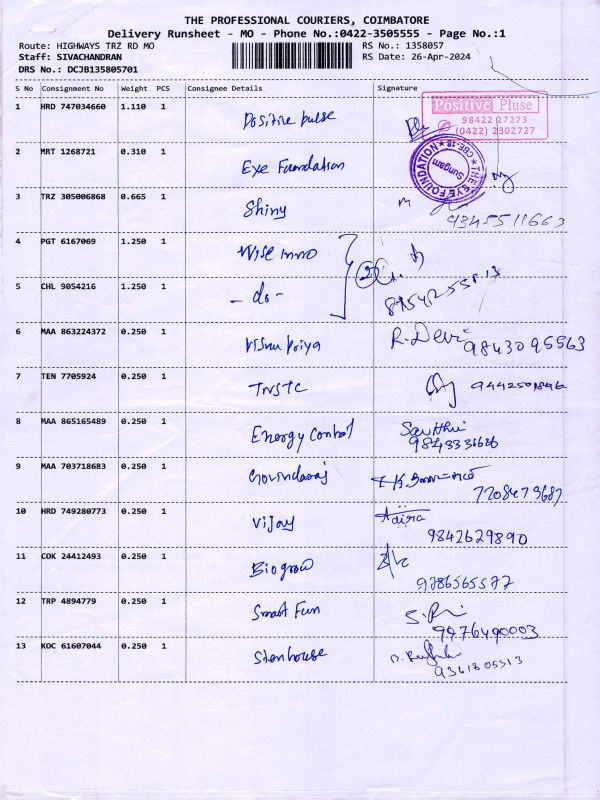 THE PROFESSIONAL COURIERS, COIMBATORE
Delivery Runsheet - MO - Phone No.:0422-3505555 - Page No.:1
Route: HIGHWAYS TRZ RD MO RS No.: 1358057
Staff: SIVACHANDRAN RS Date: 26-Apr-2024
DRS No.: DCJB135805701
S No Consignment No Weight PCS Consignee Details Signature
1 HRD 747034660 1.110 1 Positive pulse
Positive Pluse
98422 27273
(0422) 2302727
2 MRT 1268721 0.310 1 Eye Foundation
THE EYE FOUNDATION CBE-18
Sungam
3 TRZ 305006868 0.665 1 Shiny
9345511663
4 PGT 6167069 1.250 1 Wise inno
2
5 CHL 9054216 1.250 1 - do -
6 MAA 863224372 0.250 1 Vishnu priya R. Devi
9843095563
7 TEN 7705924 0.250 1 TNSTC
8 MAA 865165489 0.250 1 Energy Control
9 MAA 703718683 0.250 1 Govindaraj
7208479687
10 HRD 749280773 0.250 1 Vijay Adira
9842629890
11 COK 24412493 0.250 1 Biogrow
9786565577
12 TRP 4894779 0.250 1 Smart Fun
9976490003
13 KOC 61607044 0.250 1 Stenhouse
9361805313